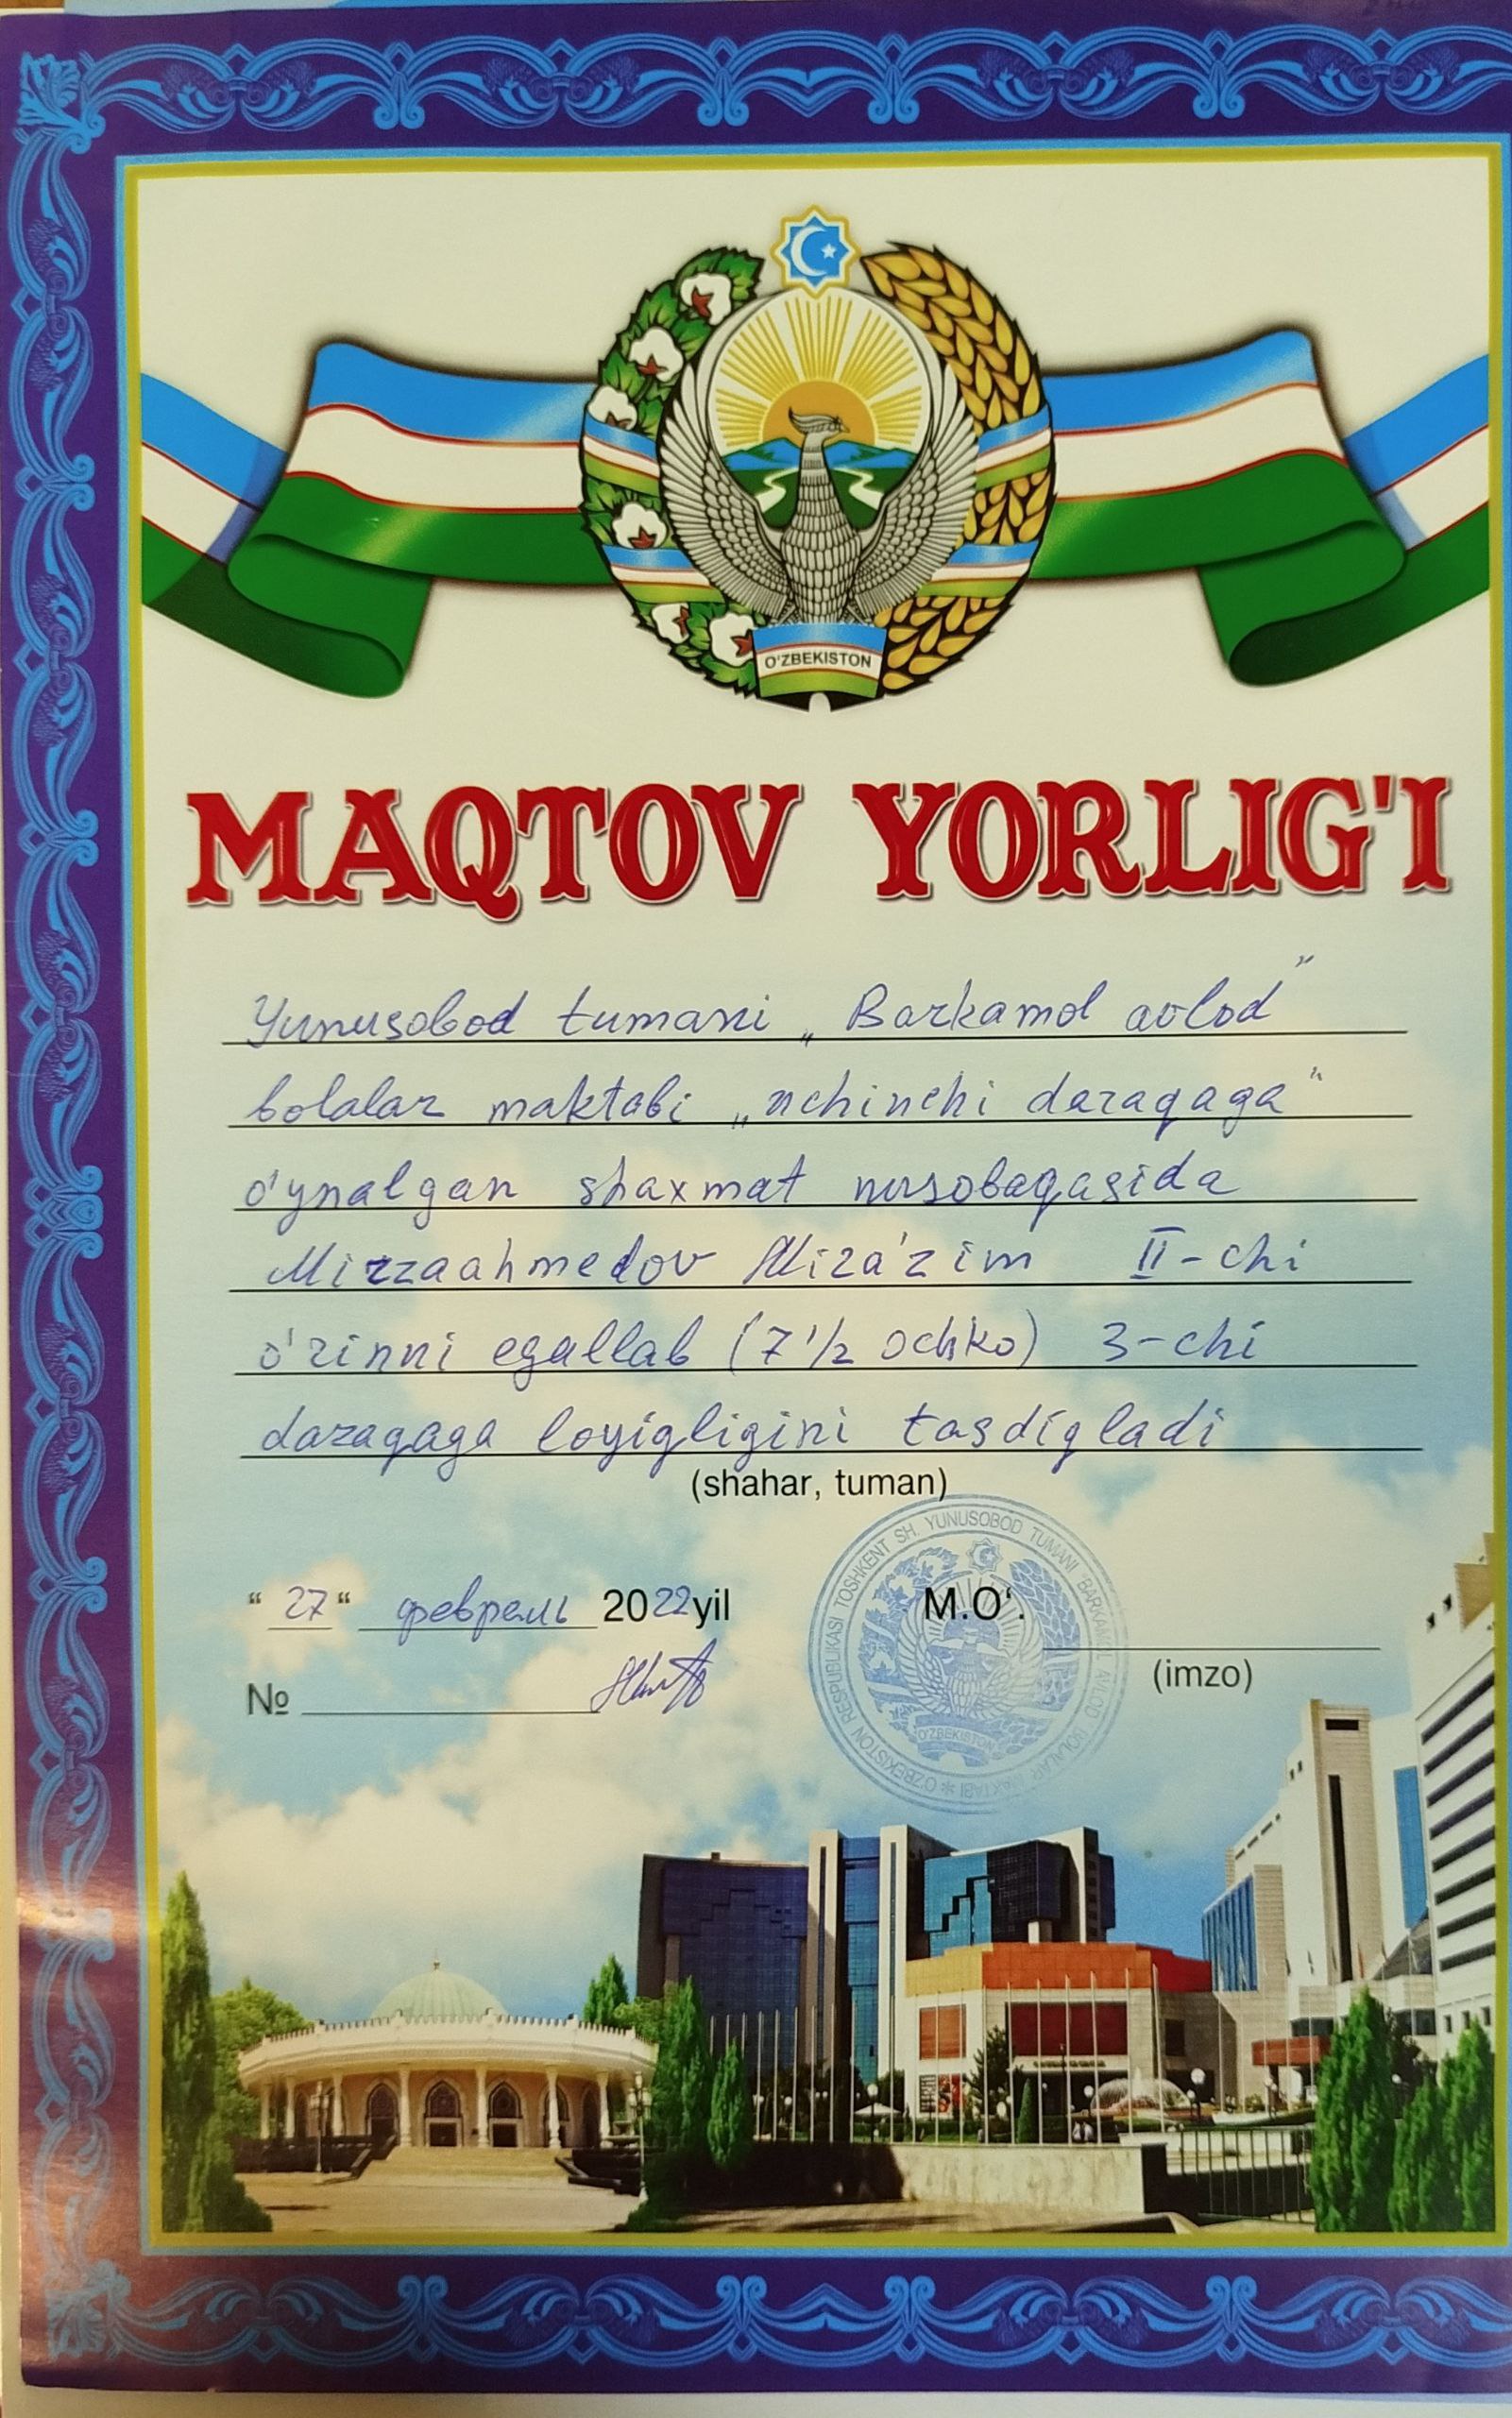 O'ZBEKISTON
MAQTOV YORLIG'I
Yunusobod tumani „Barkamol avlod”
bolalar maktabi „uchinchi daraqaga”
o'ynalgan shaxmat musobaqasida
Mirzaahmedov Mirza'zim II-chi
o'rinni egallab (7 1/2 ochko) 3-chi
daraqaga loyiqligini tasdiqladi
(shahar, tuman)
“27“ февраль 2022 yil
M.O‘.
(imzo)
№
O'ZBEKISTON RESPUBLIKASI TOSHKENT SH. YUNUSOBOD TUMANI BARKAMOL AVLOD BOLALAR MAKTABI *
O'ZBEKISTON